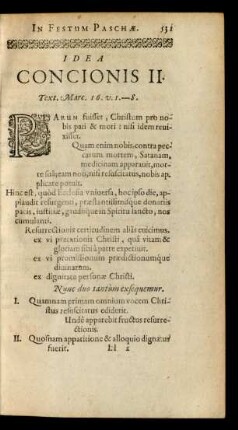 IN FESTUM PASCHÆ. 531
IDEA
CONCIONIS II.
Text. Marc. 16. v. 1.—8.
PARUM fuisset, Christum pro nobis
pati & mori: nisi idem revixisset.
Quam enim nobis contra peccatum
mortem, Satanam,
medicinam apparuit, morte
sua, eam non, nisi resuscitatus, nobis applicare
potuit.
Hinc est, quòd Ecclesia universa, hoc ipso die, applaudit
resurgenti, præstantissimóque donariis
pacis, justitiæ, gaudiique in Spiritu sancto, nos
cumulanti.
Resurrectionis certitudinem aliàs evicimus.
ex vi precationis Christi, quâ vitam &
gloriam sibi à patre expetivit.
ex vi promissionum prædictionumque
divinarum.
ex dignitate personæ Christi.
Nunc duo tantùm exsequemur.
I. Quamnam primam omnium vocem Christus
resuscitatus ediderit.
Unde apparebit fructus resurrectionis.
II. Quosnam apparitione & alloquio dignatus
fuerit. Ll 2